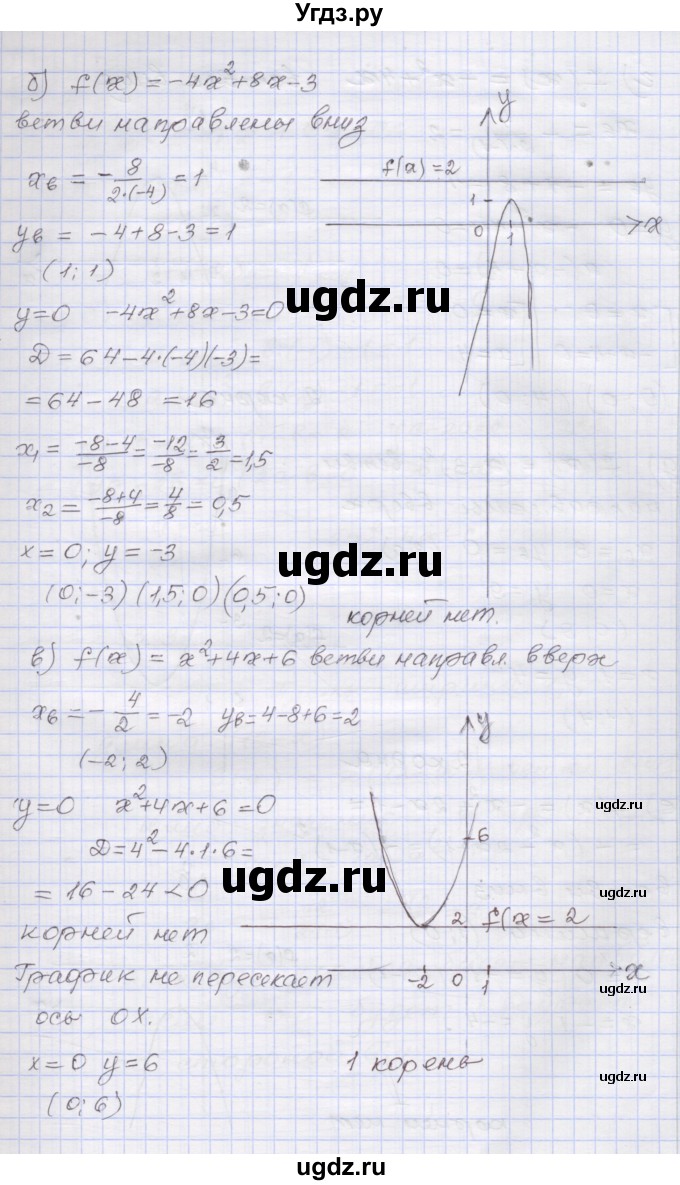 Угдз.ру
б) f(x) = -4x²+8x-3
ветви направлены вниз
xв = -8/(2·(-4)) = 1
yв = -4+8-3=1
(1; 1)
y=0 -4x²+8x-3=0
D = 64-4·(-4)(-3)=
=64-48 =16
x₁ = (-8-4)/(-8) = (-12)/(-8) = 3/2 = 1,5
x₂ = (-8+4)/(-8) = 4/8 = 0,5
x=0; y=-3
(0;-3) (1,5; 0) (0,5; 0)
y
f(x)=2
1
0 1 x
корней нет.
ugdz.ru
ugdz.ru
в) f(x) = x²+4x+6 ветви направл. вверх
xв = -4/2 = -2 yв=4-8+6=2
(-2; 2)
y=0 x²+4x+6=0
D=4²-4·1·6=
= 16-24<0
корней нет
График не пересекает
ось OX.
x=0 y=6
(0; 6)
y
6
2 f(x = 2
-2 0 1 x
1 корень
ugdz.ru
ugdz.ru
ugdz.ru
ugdz.ru
ugdz.ru
ugdz.ru